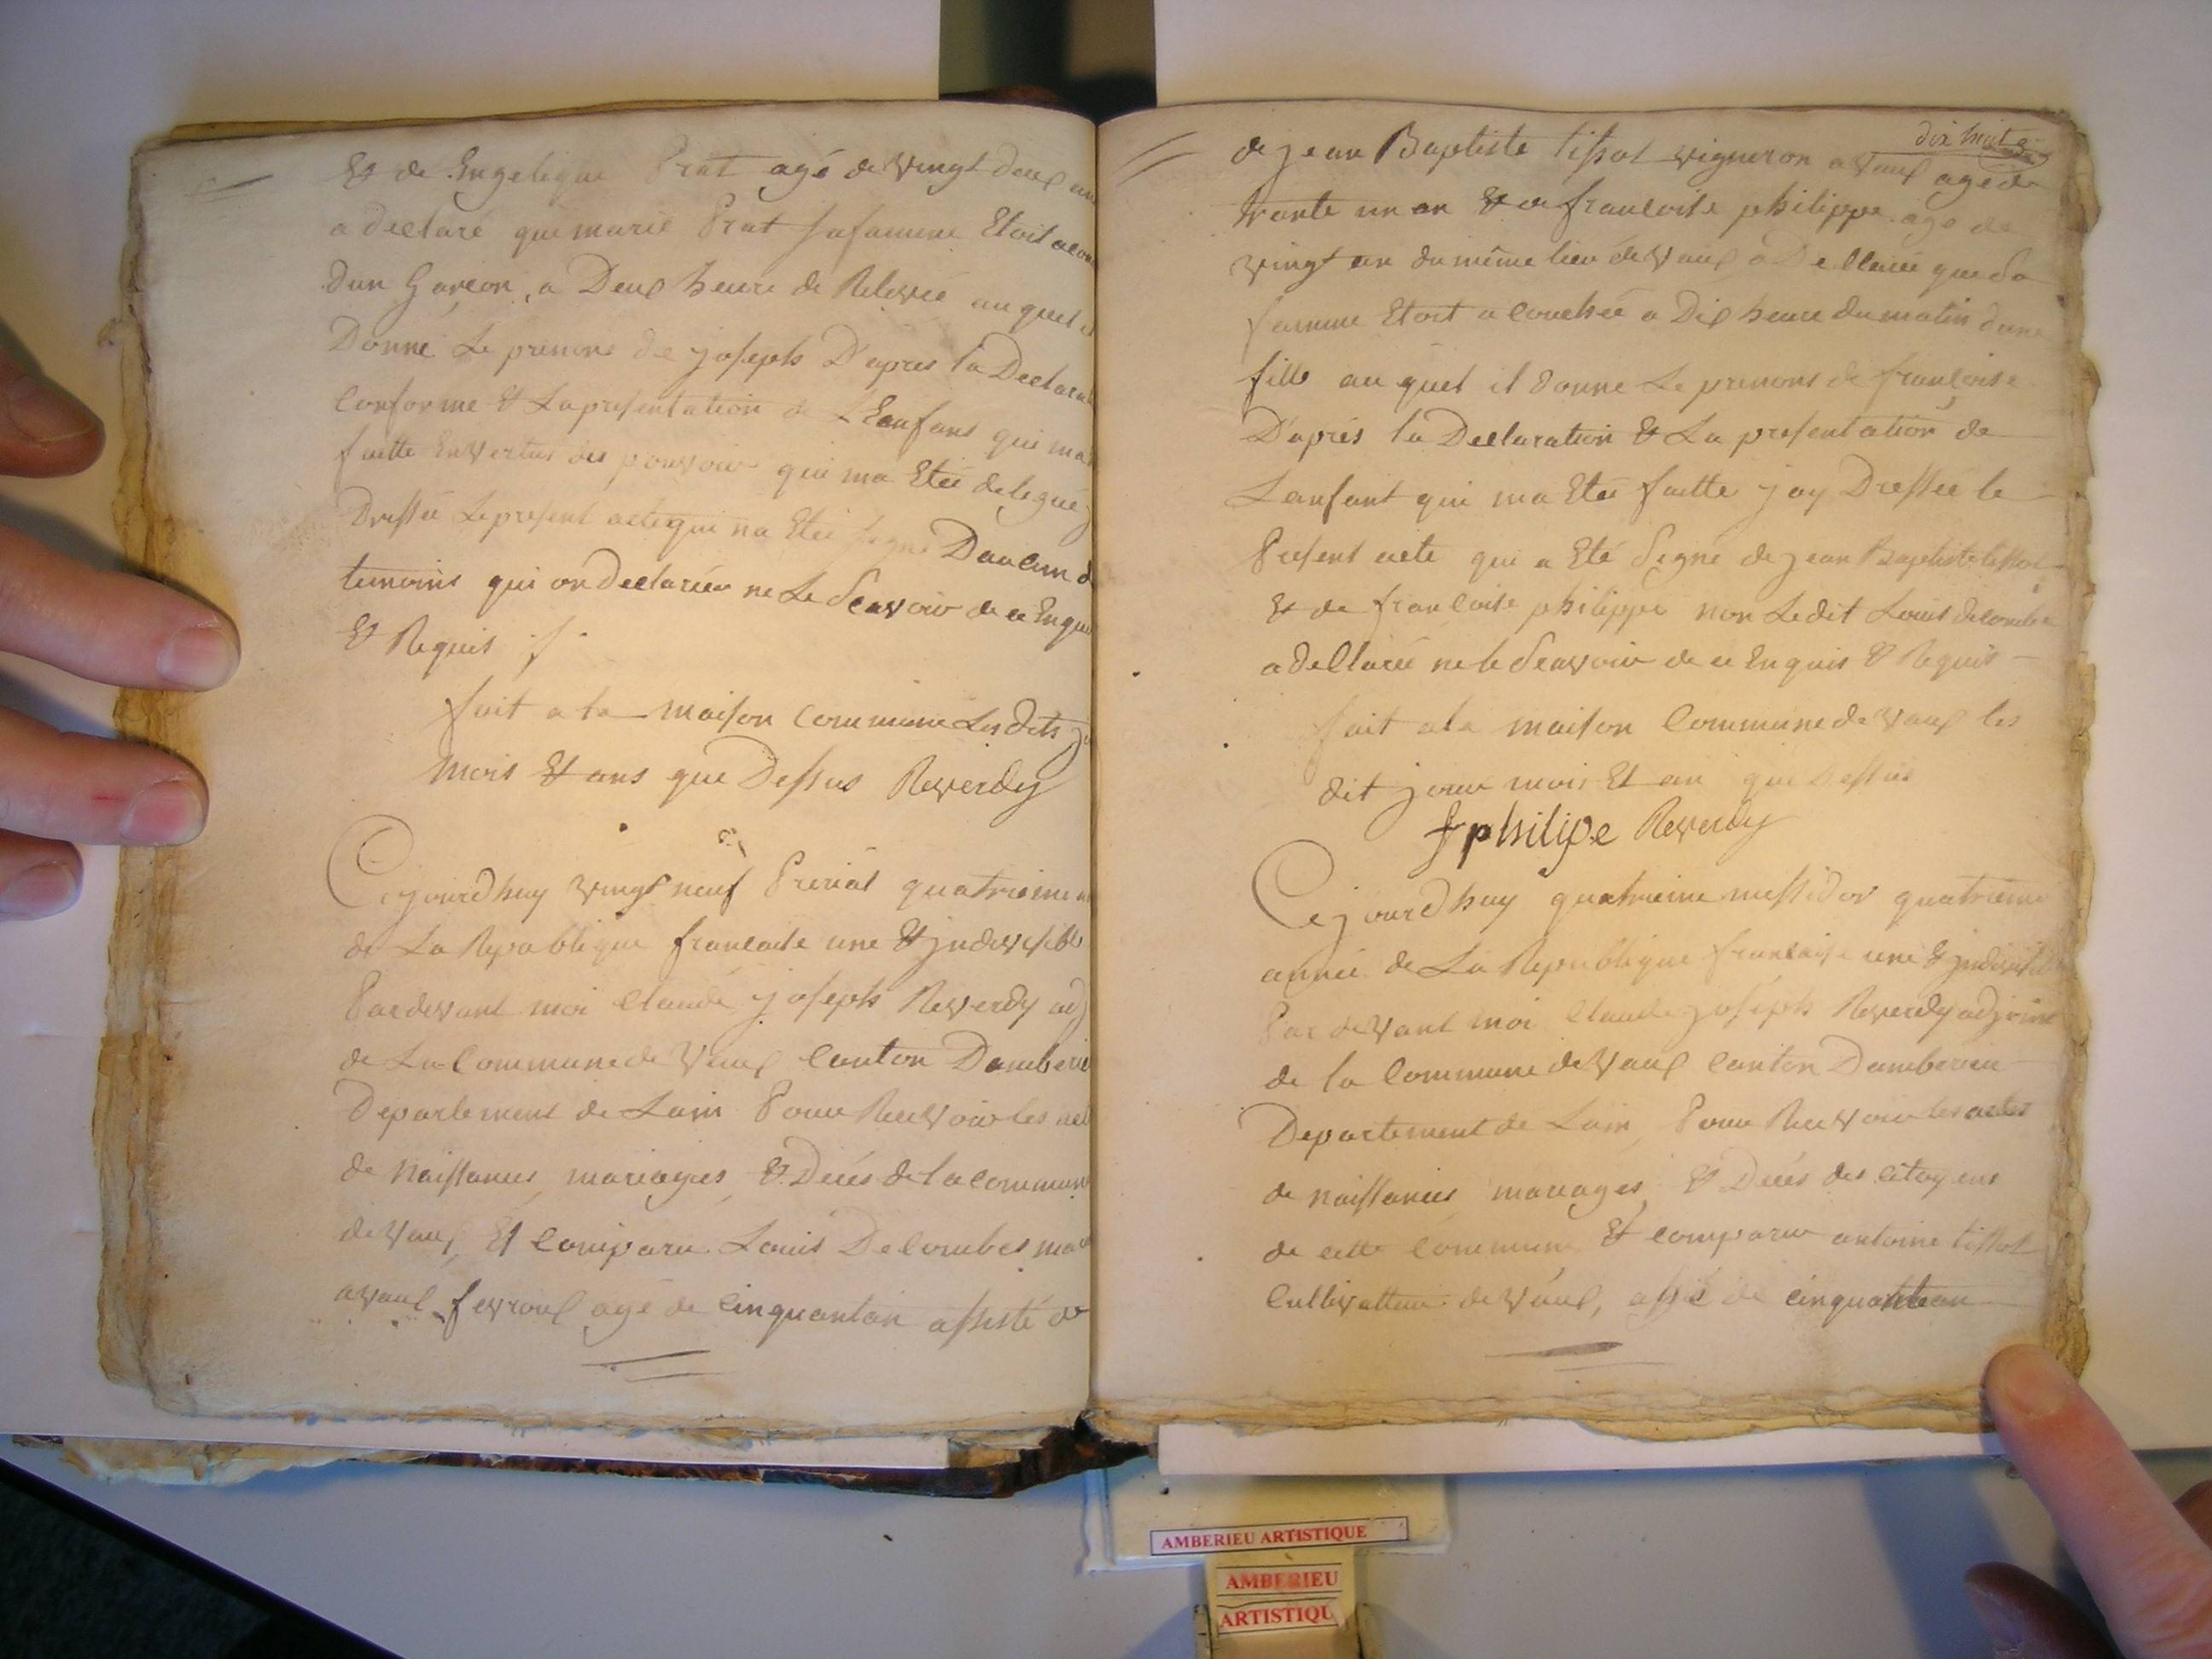 Et de Engelique Prat agé de vingt deux an
a declaré que marie Prat sa famme Etoit acou
dun Garcon, a Deux heure de Relevée au quel il
Donné Le prenons de joseph D'apres la Declarat
Conforme Et La presentation de L'Eanfans qui ma
faitte En vertus des pouvoir qui ma Etée delegué j
Dressée Le present acte qui na Etée signé Daucun d
temoins qui on declarée ne Le Scavoir de ce Enqui
Et Requis
fait a la maison Commune Les dits j
mois Et ans que Dessus Reverdy
Cejourdhuy vingt neuf Prerial quatrieme
de La Republique francaise une Et jndivisible
Pardevant moi Claude joseph Reverdy adj
de La Commune de Vaux Canton Damberie
Departement de Lain Pour Recevoir les act
de Naissances, mariages, Et Décés de la commune
de Vaux, Et Comparu Louis Decombes
a vaux fevroux agé de Cinquantan assisté de
dix huit
de jean Baptiste tissot vigneron a Vaux agé de
trante un an Et de francoise philippe agé de
vingt an du même lieu de Vaux a Dellarée que Sa
famme Etoit a Couchée a Dix heure du matin dune
fille au quel il Donne Le prenons de francoise
D'aprés la Declaration Et La presentation de
Lanfant qui ma Etée faitte jay Dressée le
Present acte qui a Eté Signé de jean Baptiste tissot
Et de francoise philippe non Le dit Louis decombe
a dellarée ne le Scavoir de ce Enquis Et Requis
fait a la maison Commune de Vaux les
dit jour mois Et an que Dessus
f philipe Reverdy
Cejourdhuy quatrieme messidor quatrieme
année de La Republique francaise une Et jndivisible
Par devant moi Claude joseph Reverdy adjoint
de la Commune de Vaux Canton Damberieu
Departement de Lain, Pour Recevoir les actes
de naissances mariages, Et Décés des citoyens
de cette Commune Et comparu antoine tissot
Cultivatteur de Vaux, de cinquante an
AMBERIEU ARTISTIQUE
AMBERIEU
ARTISTIQU